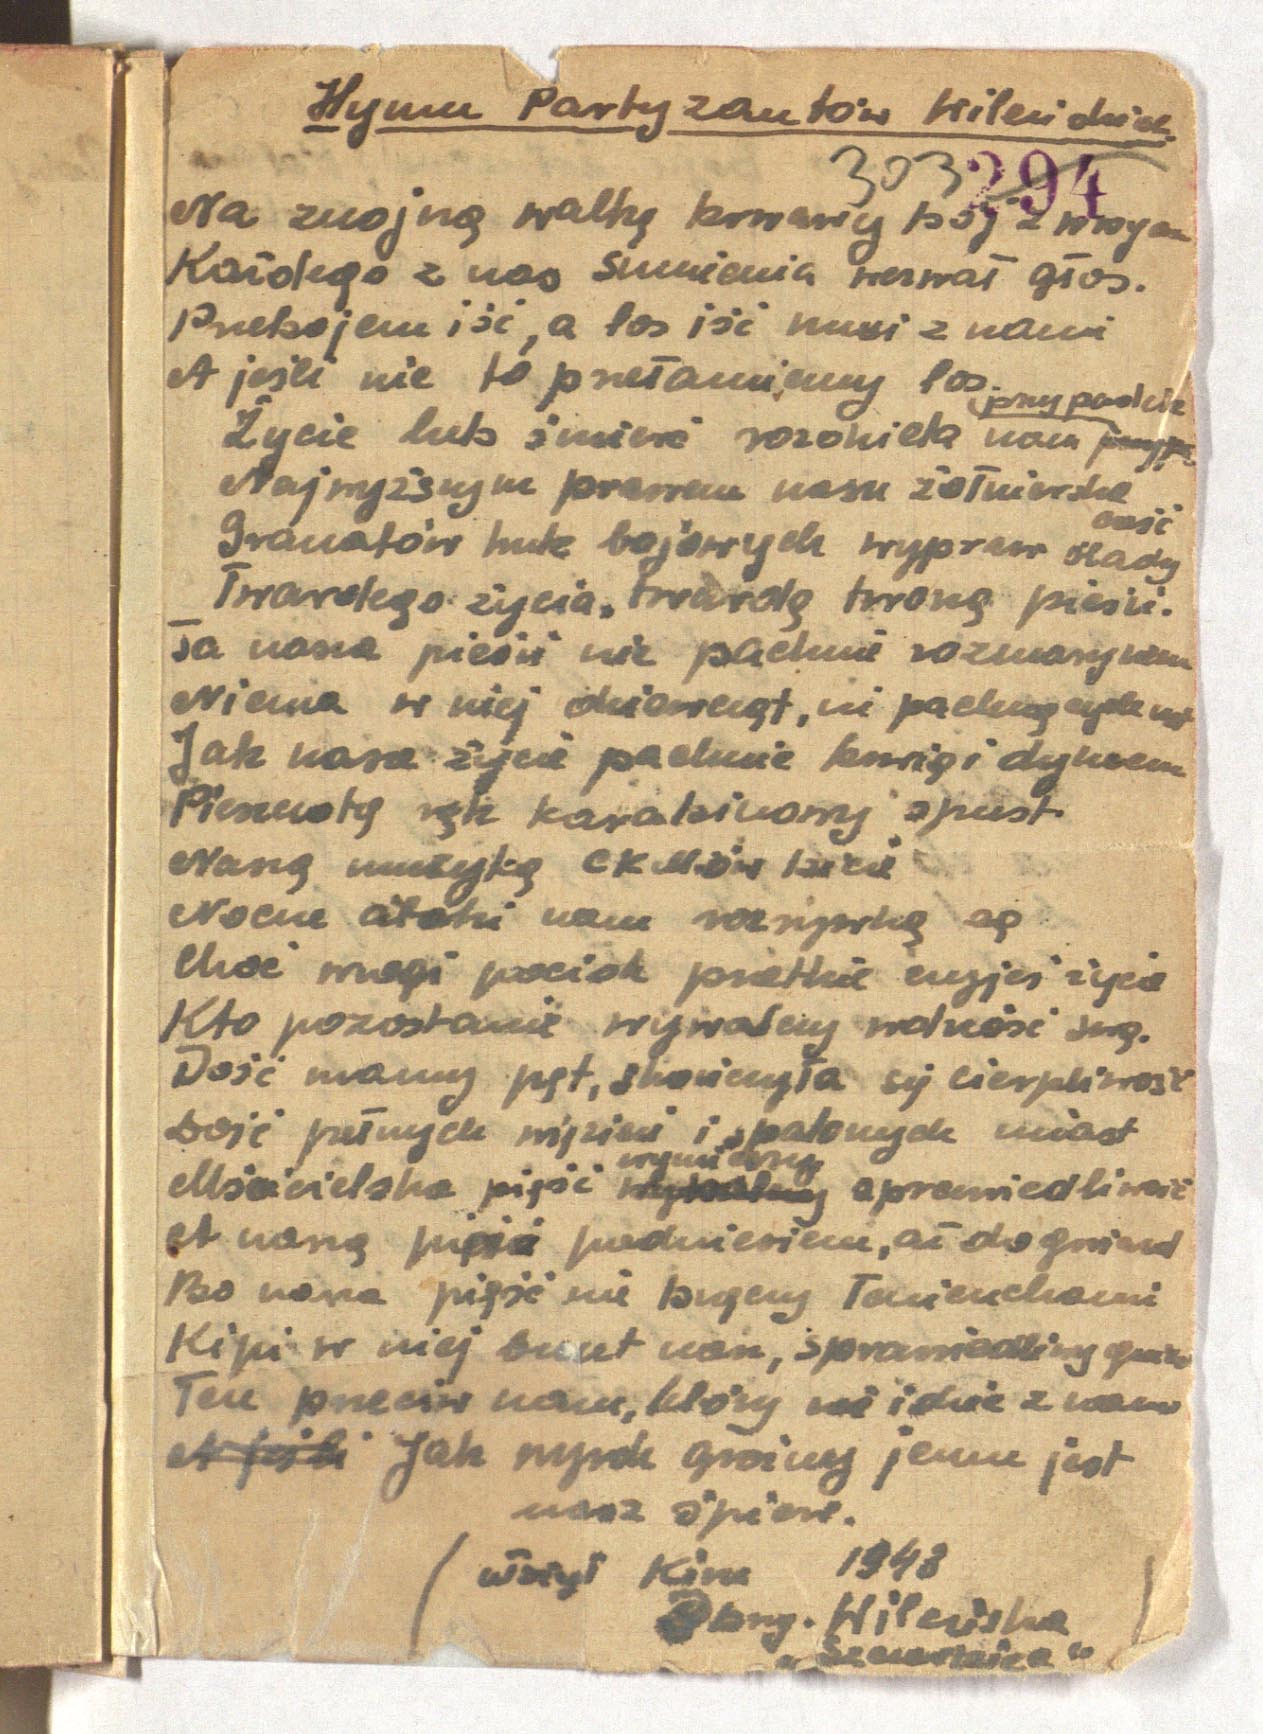 Hymn Partyzantów Wileńskich.
303 294
Na znojną walkę krwawy bój z wrogiem
Każdego z nas sumienia wezwał głos.
Przebojem iść, a los iść musi z nami
A jeśli nie to przełamiemy los.
przypadnie
Życie lub śmierć rozdziela nam
Najwyższym prawem nasza żołnierska
cześć
Granatów huk bojowych wypraw ślady
Twardego życia, twardą tworzą pieśń.
Ta nasza pieśń nie pachnie rozmarynem
Niema w niej dziewcząt, ni pachnących ust
Jak nasze życie pachnie krwią i dymem
Pieszczotą rąk karabinowy spust.
Naszą muzyką CKMów bicie
Nocne ataki nam rozrywką są
Choć wrogi pocisk przetnie czyjeś życie
Kto pozostanie wywalczy wolność swą.
Dość mamy pęt, skończyła się cierpliwość
Dość pełnych więzień i spalonych miast
wymierzy
Mścicielska pięść sprawiedliwość
A naszą pięść podniesiem, aż do gwiazd
Bo nasza pięść nie brzęczy łańcuchami
Kipi w niej bunt nasz, sprawiedliwy gniew
Ten przeciw nam, który nie idzie z nami
A jeśli Jak wyrok groźny jemu jest
nasz śpiew.
(Kim 1943
3 bryg. Wileńska
„Szczerbica”